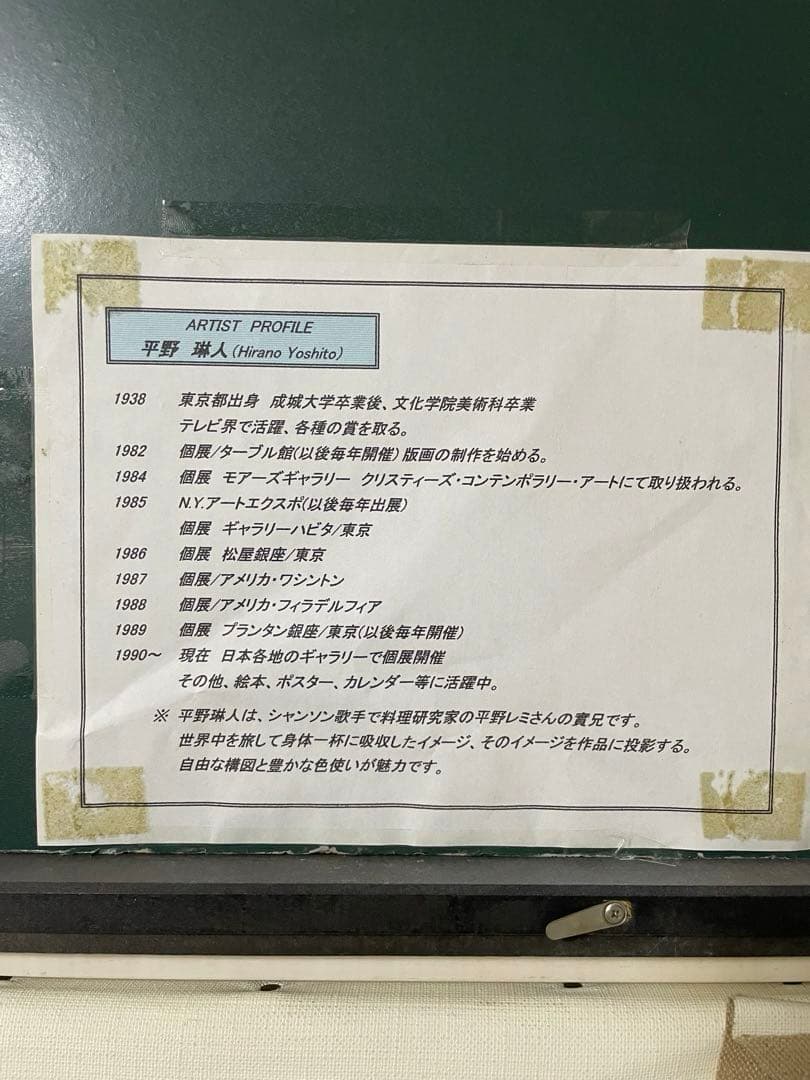 ARTIST PROFILE
平野 琳人(Hirano Yoshito)
1938 東京都出身 成城大学卒業後、文化学院美術科卒業
テレビ界で活躍、各種の賞を取る。
1982 個展/ターブル館(以後毎年開催) 版画の制作を始める。
1984 個展 モアーズギャラリー クリスティーズ・コンテンポラリー・アートにて取り扱われる。
1985 N.Y.アートエクスポ(以後毎年出展)
個展 ギャラリーハビタ/東京
1986 個展 松屋銀座/東京
1987 個展/アメリカ・ワシントン
1988 個展/アメリカ・フィラデルフィア
1989 個展 プランタン銀座/東京(以後毎年開催)
1990～ 現在 日本各地のギャラリーで個展開催
その他、絵本、ポスター、カレンダー等に活躍中。
※ 平野琳人は、シャンソン歌手で料理研究家の平野レミさんの實兄です。
世界中を旅して身体一杯に吸収したイメージ、そのイメージを作品に投影する。
自由な構図と豊かな色使いが魅力です。